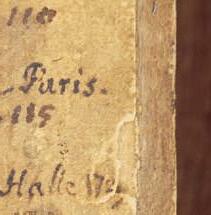 110
Paris.
115
Halle 17